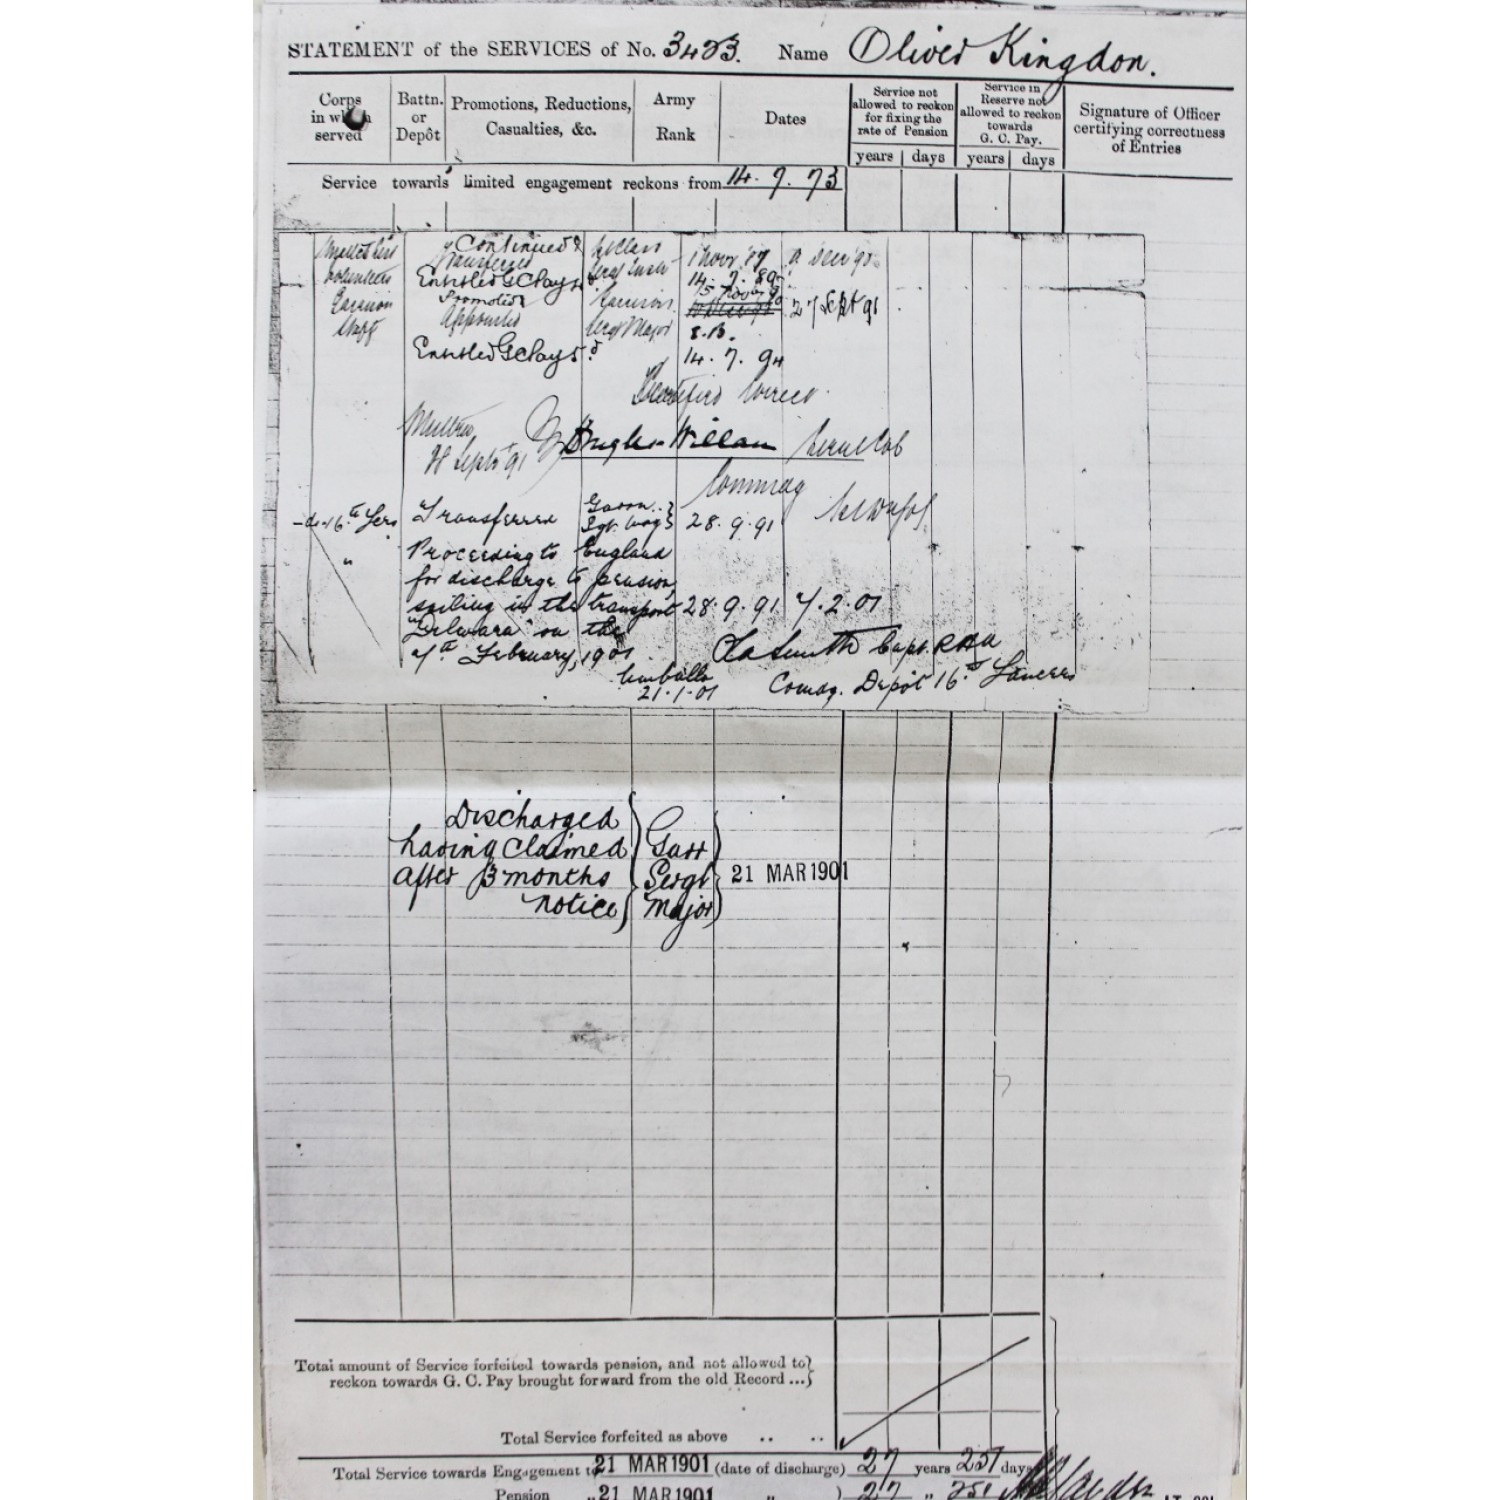 STATEMENT of the SERVICES of No. 3423. Name Oliver Kingdon.
Corps in which served
Battn. or Depôt
Promotions, Reductions, Casualties, &c.
Army Rank
Dates
Service not allowed to reckon for fixing the rate of Pension
Service in Reserve not allowed to reckon towards G. C. Pay.
Signature of Officer certifying correctness of Entries
years days years days
Service towards limited engagement reckons from 14. 7. 73
Continued &
Volunteers Entitled GCPay 14. 7. 89
Promoted 27 Sept 91
Staff Appointed Sergt Major
Entitled GCPay 5d 14. 7. 94
Certified Correct
Sept 91
Commdg
Transferred 28. 9. 91
" Proceeding to England
for discharge to pension,
sailing in the transport 28. 9. 91 7. 2. 01
"Dilwara" on the
7th February, 1901. Smith Capt. RHA
Umballa Comdg. Depôt 16th Lancers
21. 1. 01
Discharged
having claimed Garr
after 3 months Sergt 21 MAR 1901
notice Major
Total amount of Service forfeited towards pension, and not allowed to
reckon towards G. C. Pay brought forward from the old Record ...
Total Service forfeited as above .. ..
Total Service towards Engagement to 21 MAR 1901 (date of discharge) 27 years 251 days
Pension „ 21 MAR 1901 „ ) 27 „ 251